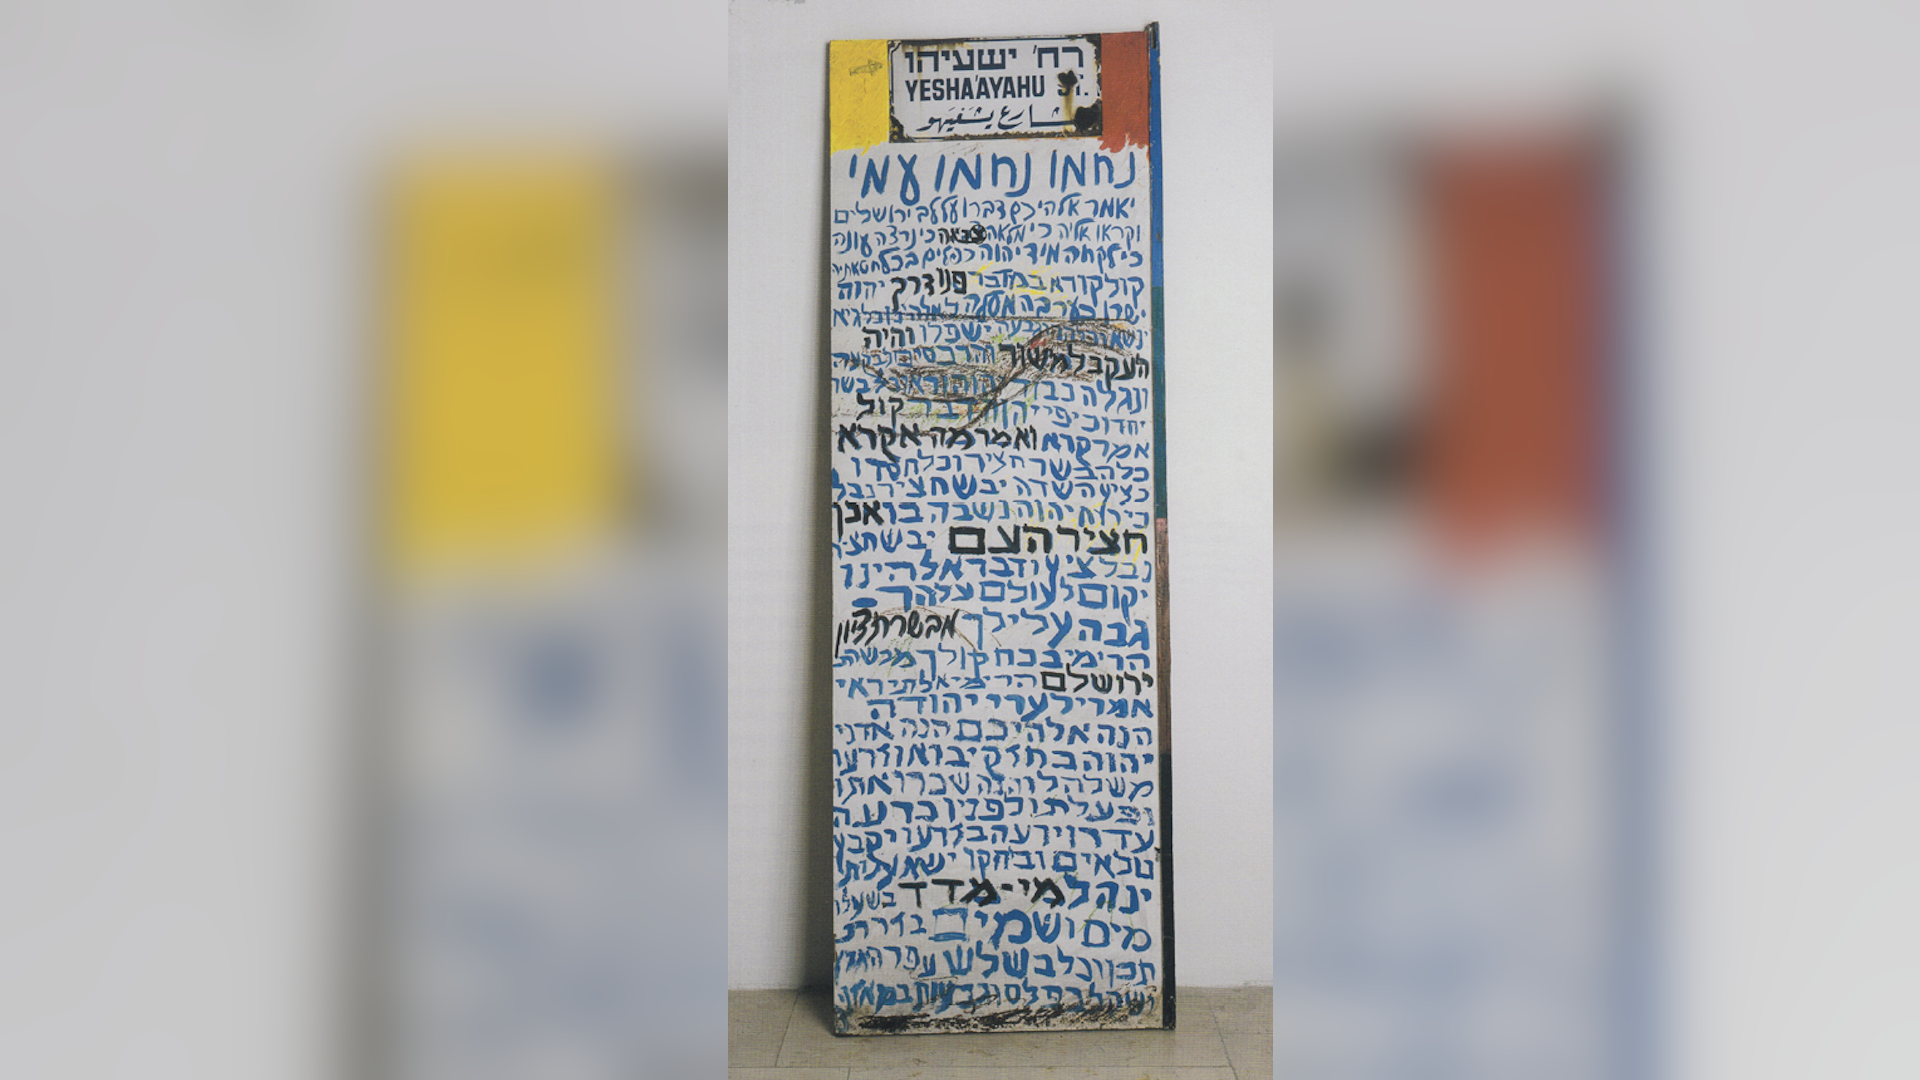 רח' ישעיהו
YESHA'AYAHU ST.
شارع يشعيهو
נחמו נחמו עמי
יאמר אלהיכם דברו על לב ירושלים
וקראו אליה כי מלאה צבאה כי נרצה עונה
כי לקחה מיד יהוה כפלים בכל חטאתיה
קול קורא במדבר פנו דרך יהוה
ישרו בערבה מסלה לאלהינו כל גיא
ינשא וכל הר וגבעה ישפלו והיה
העקב למישור והרכסים לבקעה
ונגלה כבוד יהוה וראו כל בשר
יחדו כי פי יהוה דבר קול
אמר קרא ואמר מה אקרא
כל הבשר חציר וכל חסדו
כציץ השדה יבש חציר נבל
כי רוח יהוה נשבה בו אכן
חציר העם יבש חציר
נבל ציץ ודבר אלהינו
יקום לעולם על הר
גבה עלי לך מבשרת ציון
הרימי בכח קולך מבשרת
ירושלם הרימי אל תיראי
אמרי לערי יהודה
הנה אלהיכם הנה אדני
יהוה בחזק יבוא וזרעו
משלה לו הנה שכרו אתו
ופעלתו לפניו כרעה
עדרו ירעה בזרעו יקבץ
טלאים ובחקו ישא עלות
ינהל מי-מדד בשעלו
מים ושמים בזרת
תכן וכל בשלש עפר הארץ
ושקל בפלס וגבעות במאזנים